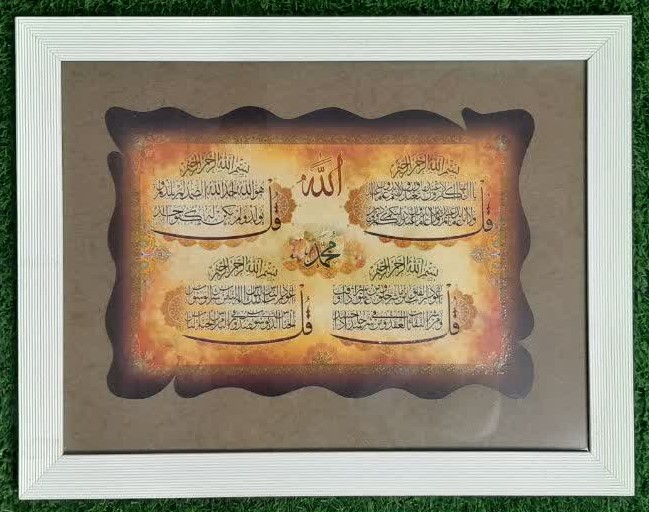 الله
بسم الله الرحمن الرحيم
قل
يا ايها الكافرون لا اعبد ما تعبدون
بسم الله الرحمن الرحيم
قل
هو الله احد الله الصمد لم يلد ولم
يولد ولم يكن له كفوا احد
محمد
بسم الله الرحمن الرحيم
قل
اعوذ برب الفلق من شر ما خلق ومن شر غاسق اذا وقب
ومن شر النفاثات في العقد ومن شر حاسد اذا حسد
بسم الله الرحمن الرحيم
قل
اعوذ برب الناس ملك الناس اله الناس من شر الوسواس
الخناس الذي يوسوس في صدور الناس من الجنة والناس